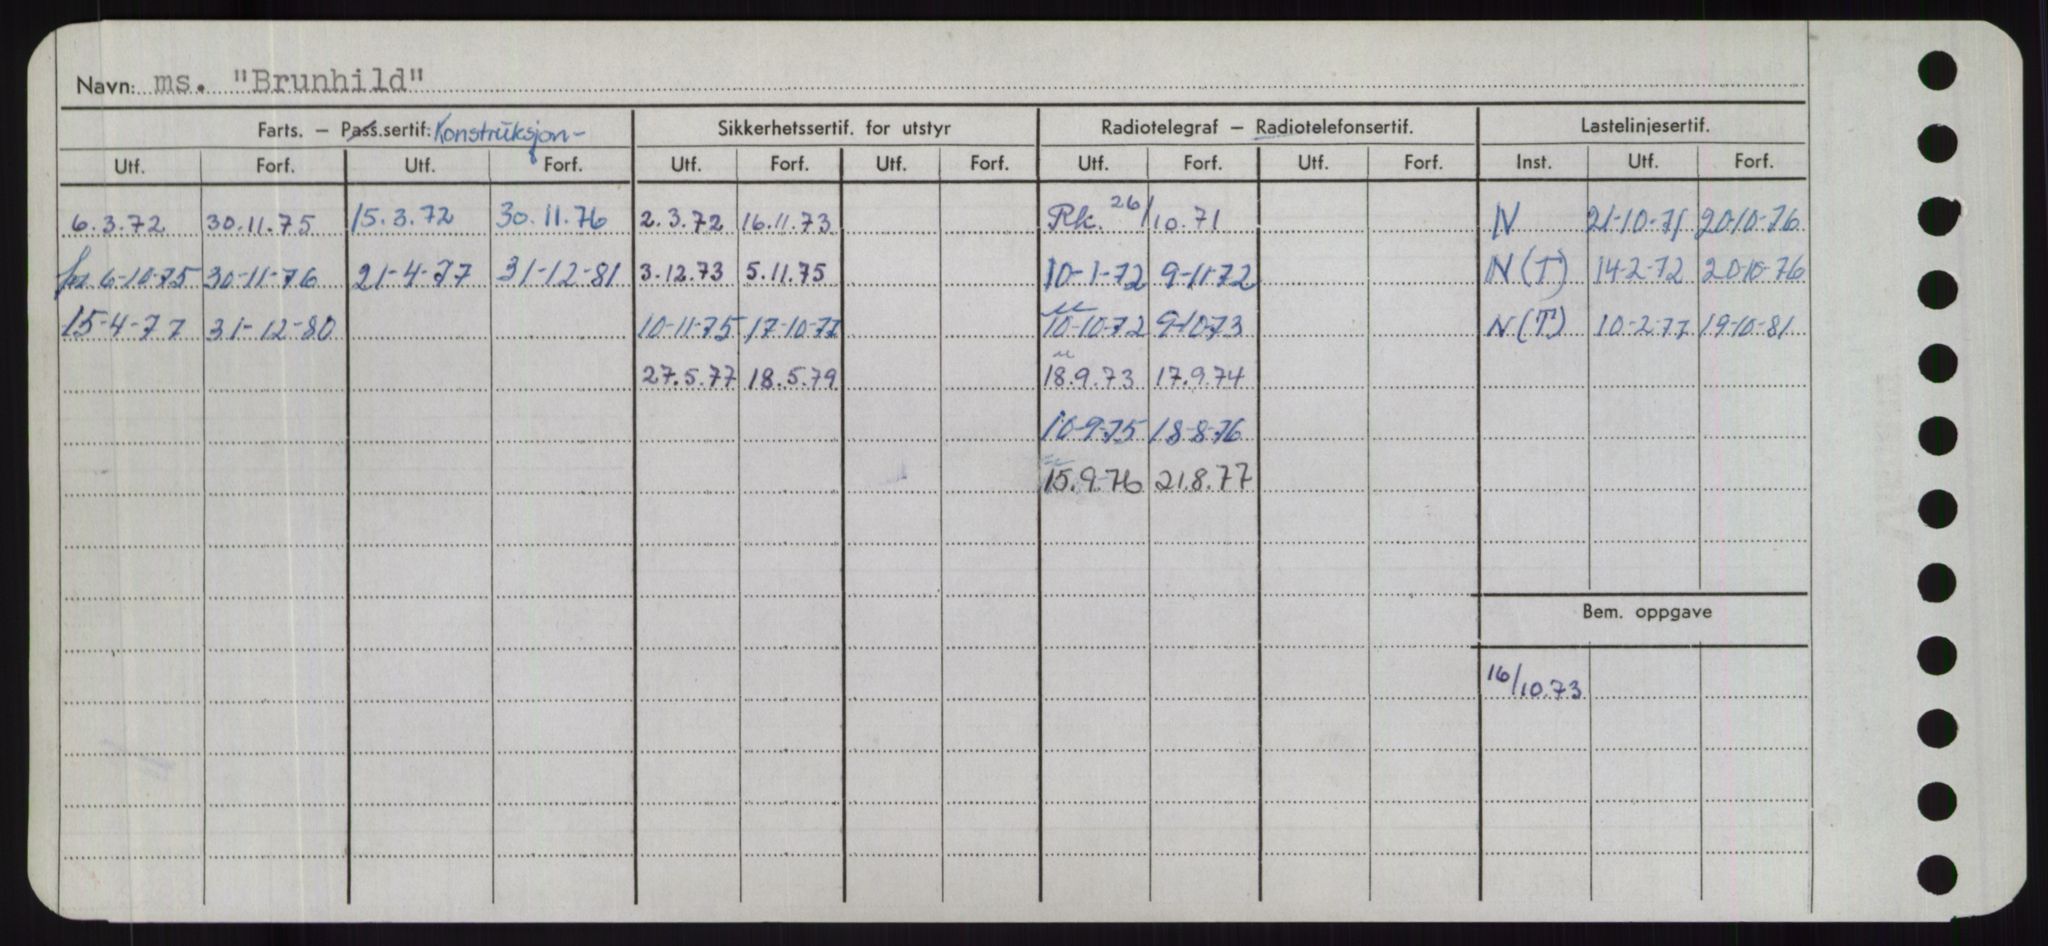 Navn: ms. "Brunhild"
Farts. – Pass.sertif: Konstruksjon- Sikkerhetssertif. for utstyr Radiotelegraf – Radiotelefonsertif. Lastelinjesertif.
Utf. Forf. Utf. Forf. Utf. Forf. Utf. Forf. Utf. Forf. Utf. Forf. Inst. Utf. Forf.
6.3.72 30.11.75 15.3.72 30.11.76 2.3.72 16.11.73 Rk. 26/10.71 N 21-10-71 20-10-76
6-10-75 30-11-76 21-4-77 31-12-81 3.12.73 5.11.75 10-1-72 9-11-72 N(T) 14-2-72 20-10-76
15-4-77 31-12-80 10-11-75 17-10-77 10-10-72 9-10-73 N(T) 10-2-77 19-10-81
27.5.77 18.5.79 18.9.73 17.9.74
10-9-75 18-8-76
15.9.76 21.8.77
Bem. oppgave
16/10.73